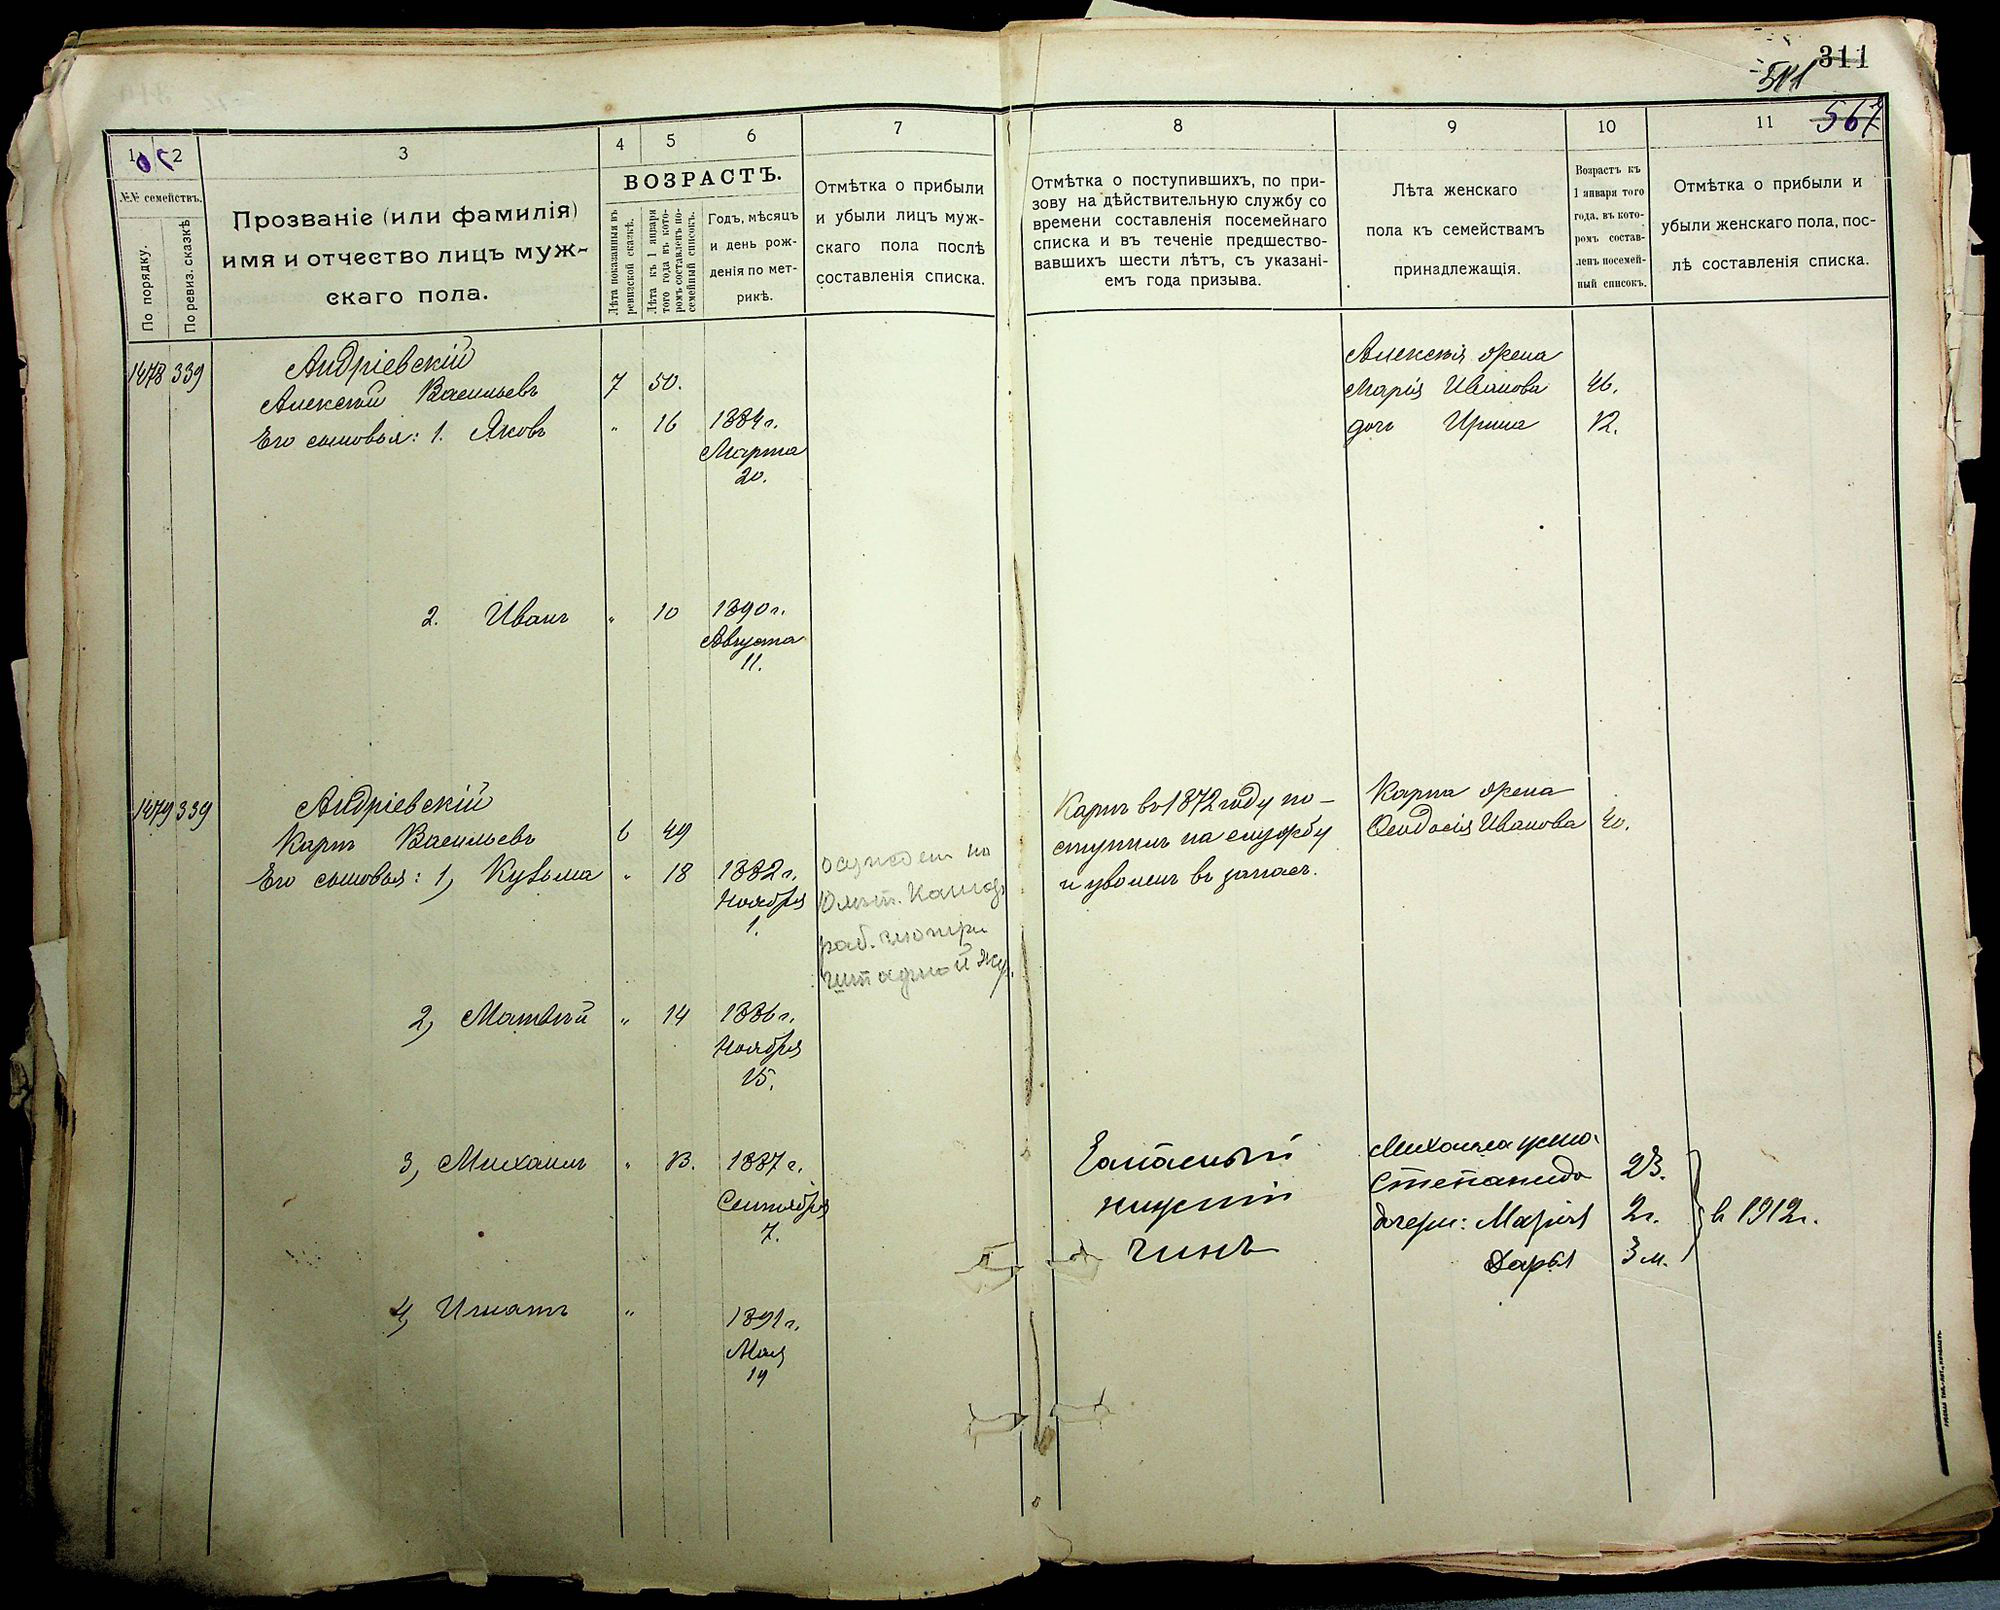 311
511
567
1 2
3
4 5 6
7
№№ семействъ.
По порядку.
По ревиз. сказкѣ
Прозваніе (или фамилія)
имя и отчество лицъ муж-
скаго пола.
ВОЗРАСТЪ.
Лѣта показанныя въ
ревизской сказкѣ.
Лѣта къ 1 января
того года въ кото-
ромъ составленъ по-
семейный списокъ.
Годъ, мѣсяцъ
и день рож-
денія по мет-
рикѣ.
Отмѣтка о прибыли
и убыли лицъ муж-
скаго пола послѣ
составленія списка.
1478 339
Андріевскій
Алексѣй Васильевъ 7 50.
Его сыновья: 1. Яковъ " 16 1884 г.
Марта
20.
2. Иванъ " 10 1890 г.
Августа
11.
1479 339
Андріевскій
Карпъ Васильевъ 6 49
Его сыновья: 1, Кузьма " 18 1882 г.
Ноября
1.
2, Матвѣй " 14 1886 г.
Ноября
15.
3, Михаилъ " 13. 1887 г.
Сентября
7.
4, Игнатъ " 1891 г.
Мая
19
8
9
10
11
Отмѣтка о поступившихъ, по при-
зову на дѣйствительную службу со
времени составленія посемейнаго
списка и въ теченіе предшество-
вавшихъ шести лѣтъ, съ указані-
емъ года призыва.
Лѣта женскаго
пола къ семействамъ
принадлежащія.
Возрастъ къ
1 января того
года, въ кото-
ромъ состав-
ленъ посемей-
ный списокъ.
Отмѣтка о прибыли и
убыли женскаго пола, пос-
лѣ составленія списка.
Алексѣя жена
Марія Иванова 46.
дочь Ирина 12.
Карпъ въ 1872 году по-
ступилъ на службу
и уволенъ въ запасъ.
Карпа жена
Ѳеодосія Иванова 40.
Запасный
нижній
чинъ
Михаила жена
Степанида 23.
дочери: Марія 2 г.
Дарья 3 м.
в 1912 г.